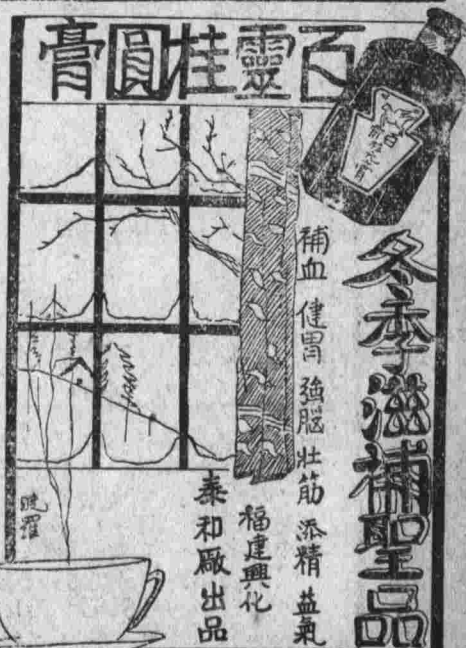 百靈桂圓膏
冬季滋補聖品
補血 健胃 強腦 壯筋 添精 益氣
福建興化
泰和廠出品
曉霞